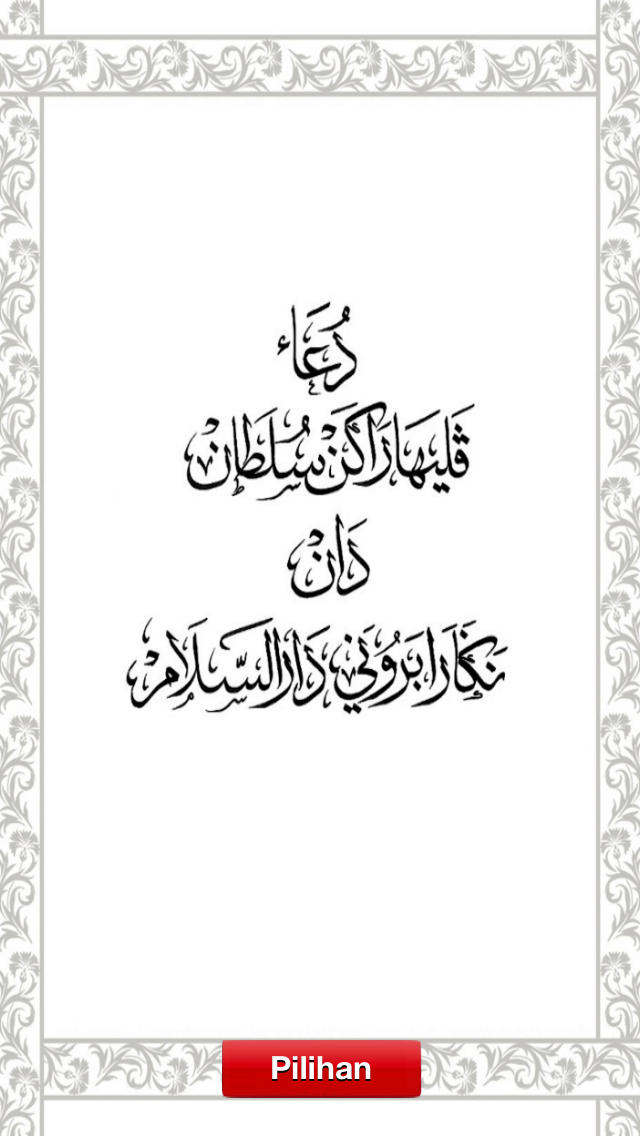 دُعَاء
ڤليهَارَاکَنْ سُلطَانْ
دَانْ
نَݢَارَا بَرُوْنَي دَارُالسَّلَامْ
Pilihan